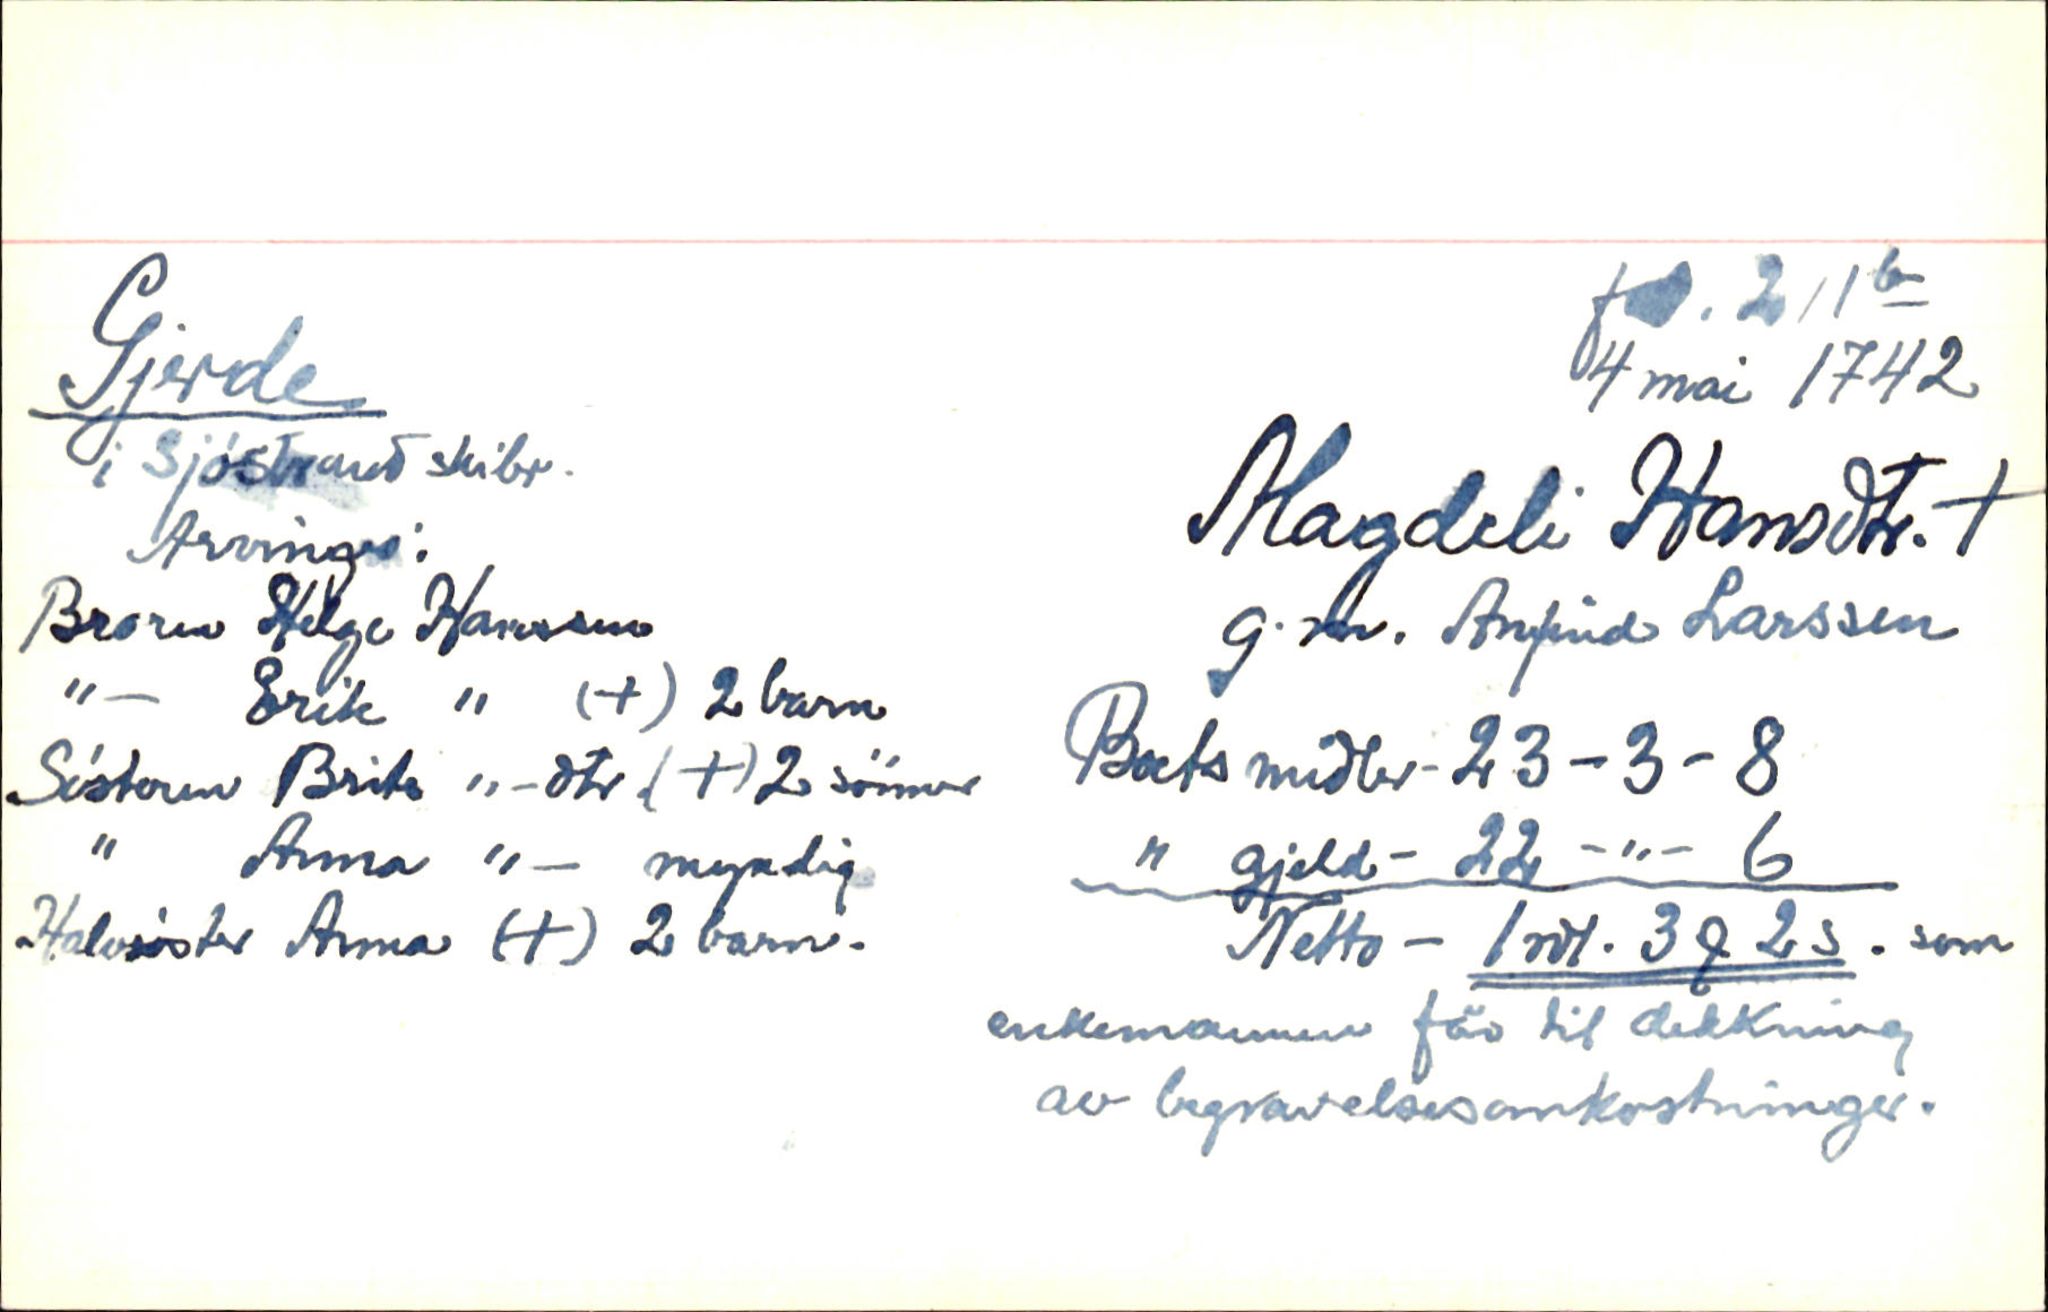 Gjerde
i Sjöstrand skibr.
Arvinger:
Broren Helge Hanssen
"– Erik " (+) 2 barn
Sösteren Brita "–dtr (+) 2 sönner
" Anna "– myndig
Halvsöster Anna (+) 2 barn.
fol. 211b
4 mai 1742
Magdeli Hansdtr. +
g.m. Anfind Larssen
Boets midler - 23 - 3 - 8
" gjeld - 22 - " - 6
Netto - 1 rdl. 3 q 2 s. som
enkemannen får til dekkning
av begravelsesomkostninger.